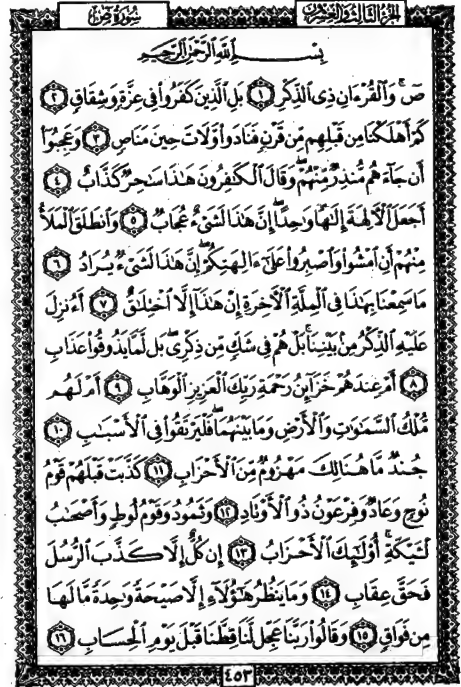 سُورَةُ صٓ
الجزء الثالث والعشرون
بِسْمِ ٱللَّهِ ٱلرَّحْمَٰنِ ٱلرَّحِيمِ
صٓۚ وَٱلْقُرْءَانِ ذِى ٱلذِّكْرِ ١ بَلِ ٱلَّذِينَ كَفَرُوا۟ فِى عِزَّةٍ وَشِقَاقٍ ٢
كَمْ أَهْلَكْنَا مِن قَبْلِهِم مِّن قَرْنٍ فَنَادَوا۟ وَّلَاتَ حِينَ مَنَاصٍ ٣ وَعَجِبُوٓا۟
أَن جَآءَهُم مُّنذِرٌ مِّنْهُمْۖ وَقَالَ ٱلْكَٰفِرُونَ هَٰذَا سَٰحِرٌ كَذَّابٌ ٤
أَجَعَلَ ٱلْءَالِهَةَ إِلَٰهًا وَٰحِدًاۖ إِنَّ هَٰذَا لَشَىْءٌ عُجَابٌ ٥ وَٱنطَلَقَ ٱلْمَلَأُ
مِنْهُمْ أَنِ ٱمْشُوا۟ وَٱصْبِرُوا۟ عَلَىٰٓ ءَالِهَتِكُمْۖ إِنَّ هَٰذَا لَشَىْءٌ يُرَادُ ٦
مَا سَمِعْنَا بِهَٰذَا فِى ٱلْمِلَّةِ ٱلْءَاخِرَةِ إِنْ هَٰذَآ إِلَّا ٱخْتِلَٰقٌ ٧ أَءُنزِلَ
عَلَيْهِ ٱلذِّكْرُ مِنۢ بَيْنِنَاۚ بَلْ هُمْ فِى شَكٍّ مِّن ذِكْرِىۖ بَل لَّمَّا يَذُوقُوا۟ عَذَابِ
٨ أَمْ عِندَهُمْ خَزَآئِنُ رَحْمَةِ رَبِّكَ ٱلْعَزِيزِ ٱلْوَهَّابِ ٩ أَمْ لَهُم
مُّلْكُ ٱلسَّمَٰوَٰتِ وَٱلْأَرْضِ وَمَا بَيْنَهُمَاۖ فَلْيَرْتَقُوا۟ فِى ٱلْأَسْبَٰبِ ١٠
جُندٌ مَّا هُنَالِكَ مَهْزُومٌ مِّنَ ٱلْأَحْزَابِ ١١ كَذَّبَتْ قَبْلَهُمْ قَوْمُ
نُوحٍ وَعَادٌ وَفِرْعَوْنُ ذُو ٱلْأَوْتَادِ ١٢ وَثَمُودُ وَقَوْمُ لُوطٍ وَأَصْحَٰبُ
لْـَٔيْكَةِۚ أُو۟لَٰٓئِكَ ٱلْأَحْزَابُ ١٣ إِن كُلٌّ إِلَّا كَذَّبَ ٱلرُّسُلَ
فَحَقَّ عِقَابِ ١٤ وَمَا يَنظُرُ هَٰٓؤُلَآءِ إِلَّا صَيْحَةً وَٰحِدَةً مَّا لَهَا
مِن فَوَاقٍ ١٥ وَقَالُوا۟ رَبَّنَا عَجِّل لَّنَا قِطَّنَا قَبْلَ يَوْمِ ٱلْحِسَابِ ١٦
٤٥٣